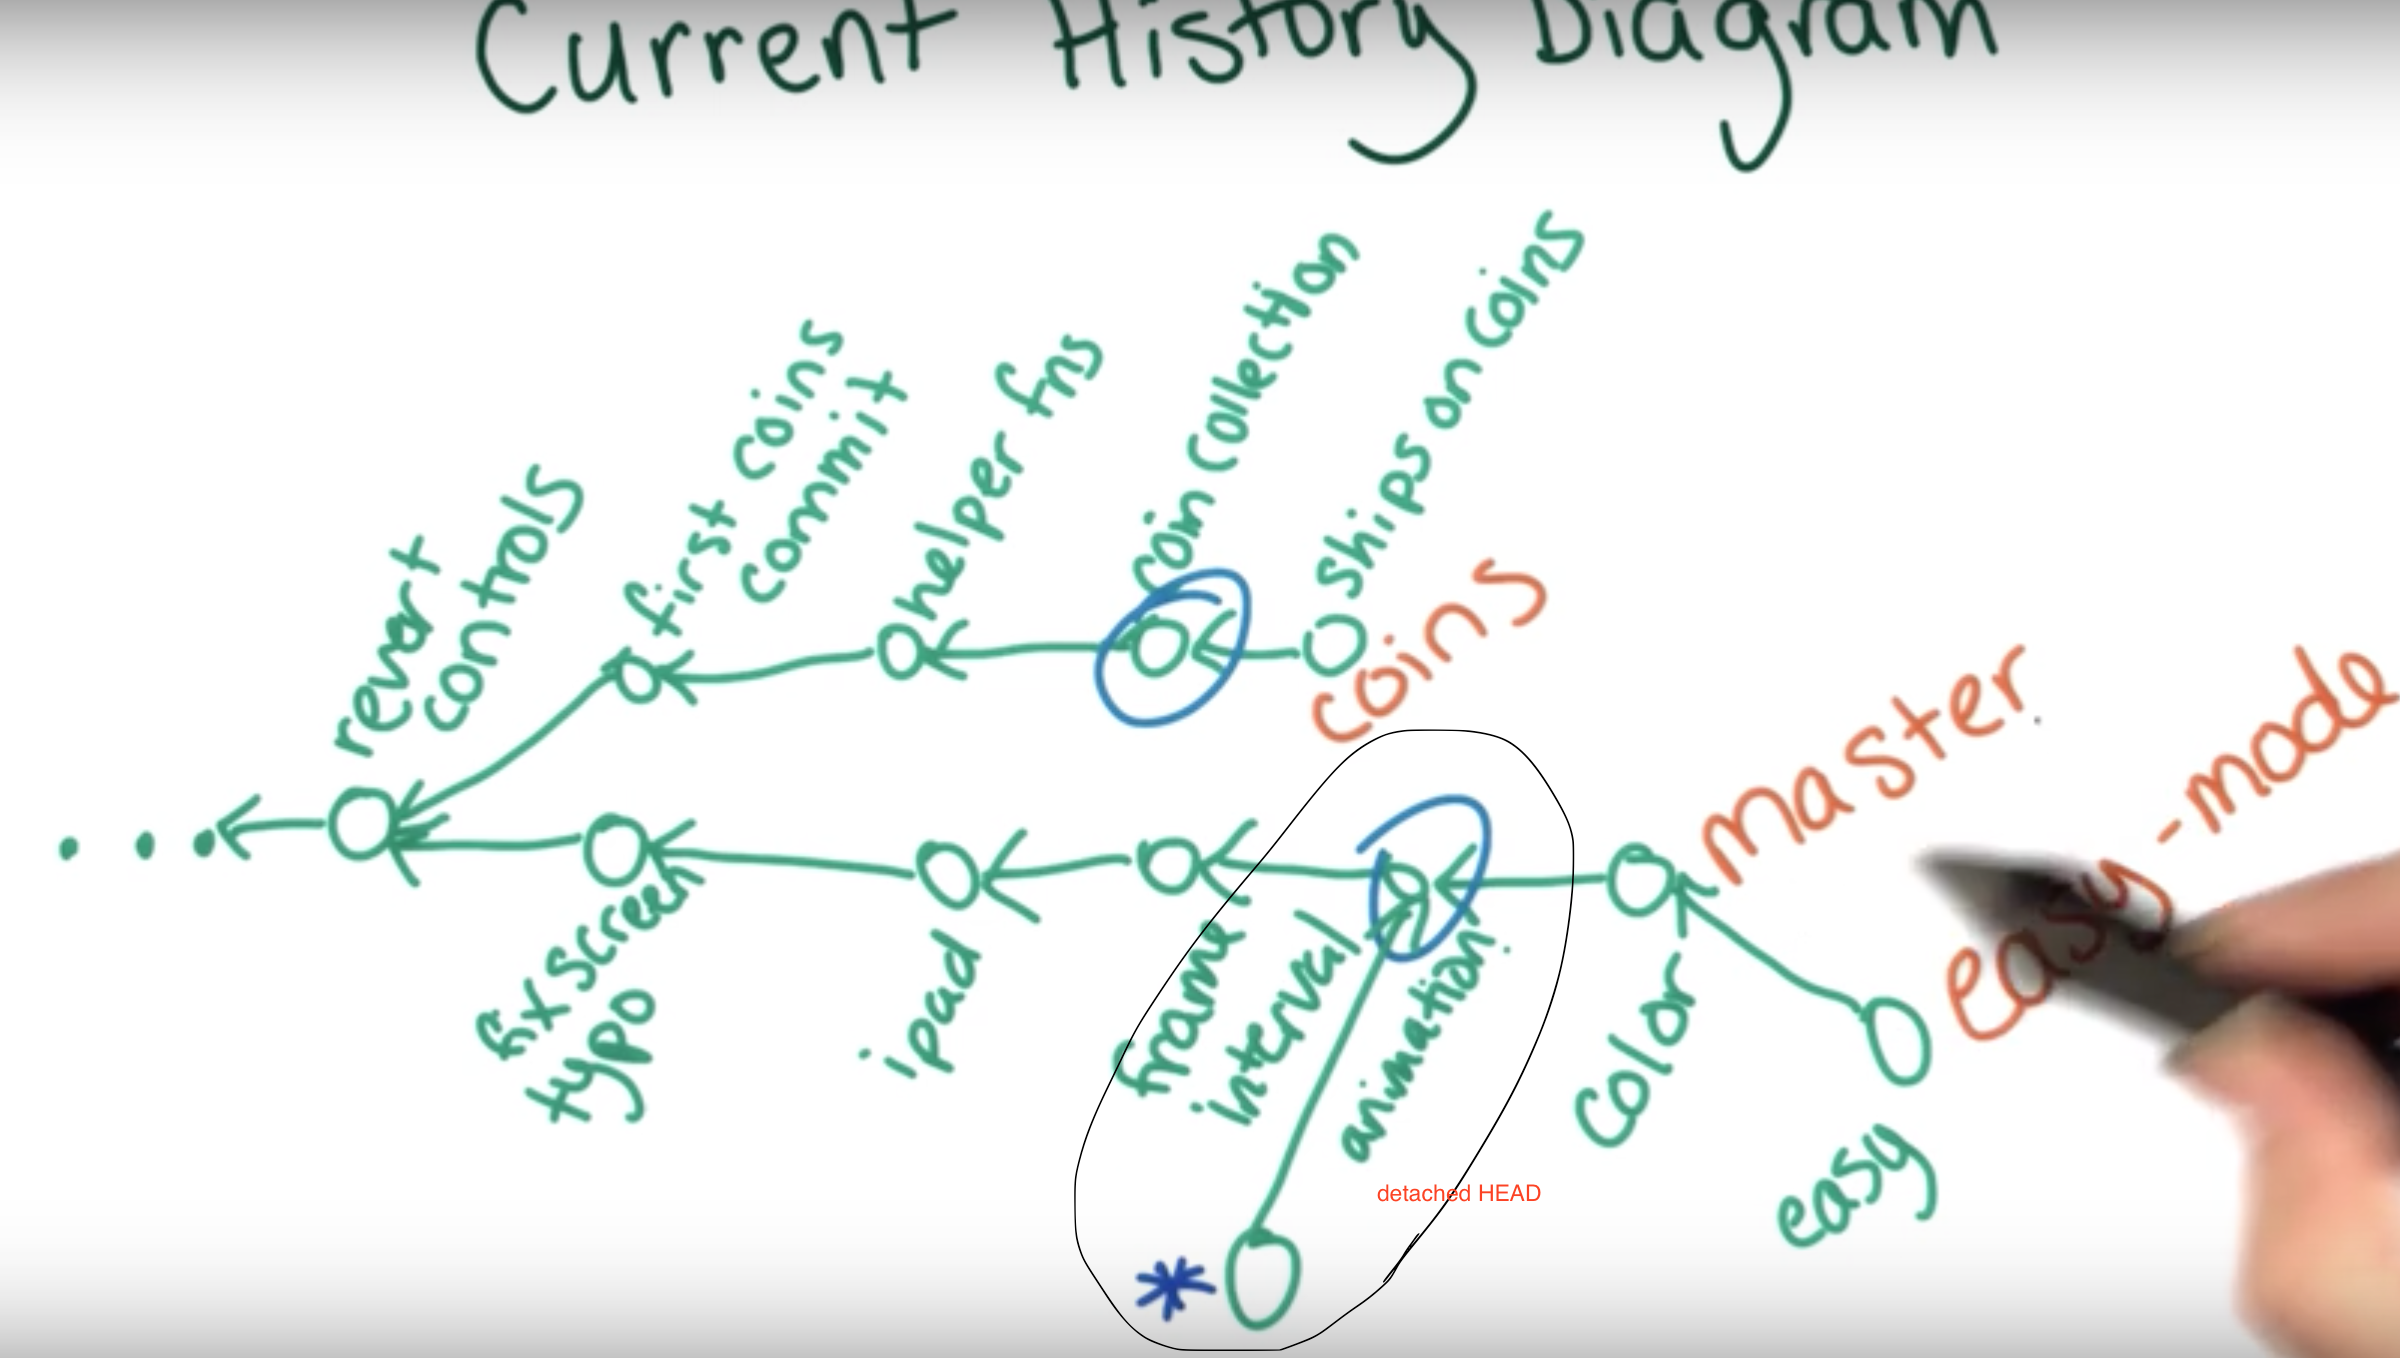 Current History Diagram
revert
controls
first coins
commit
helper fns
coin collection
ships on coins
coins
master
easy-mode
fix screen
typo
ipad
frame
interval
animation
color
easy
detached HEAD
*